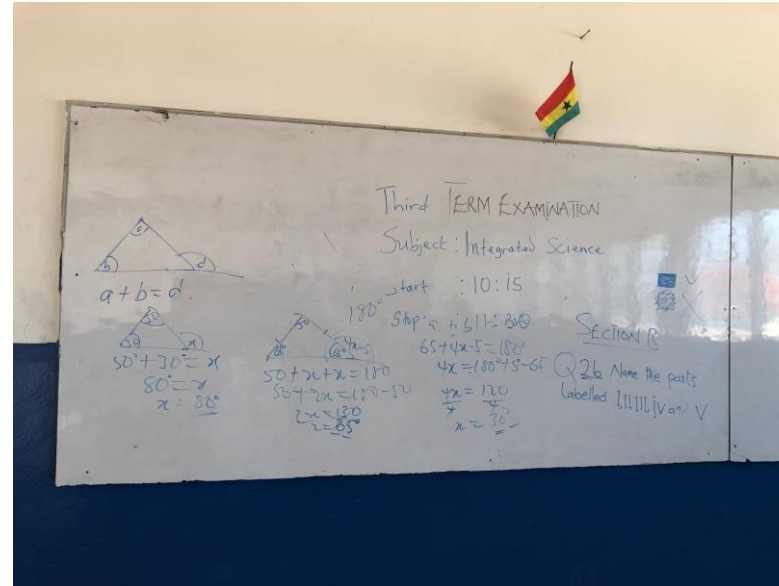 Third TERM EXAMINATION
Subject: Integrated Science
start : 10:15
SECTION B
Q2b Name the parts
labelled I,II,III,IV and V
a
b
d
a + b = d.
x
50° + 30° = x
80° = x
x = 80°
180°
50
4x-5
50 + x + x = 180
50 + 2x = 180 - 50
2x = 130
x = 65°
65 + 4x - 5 = 180°
4x = 180° + 5 - 65
4x = 120
4 4
x = 30°